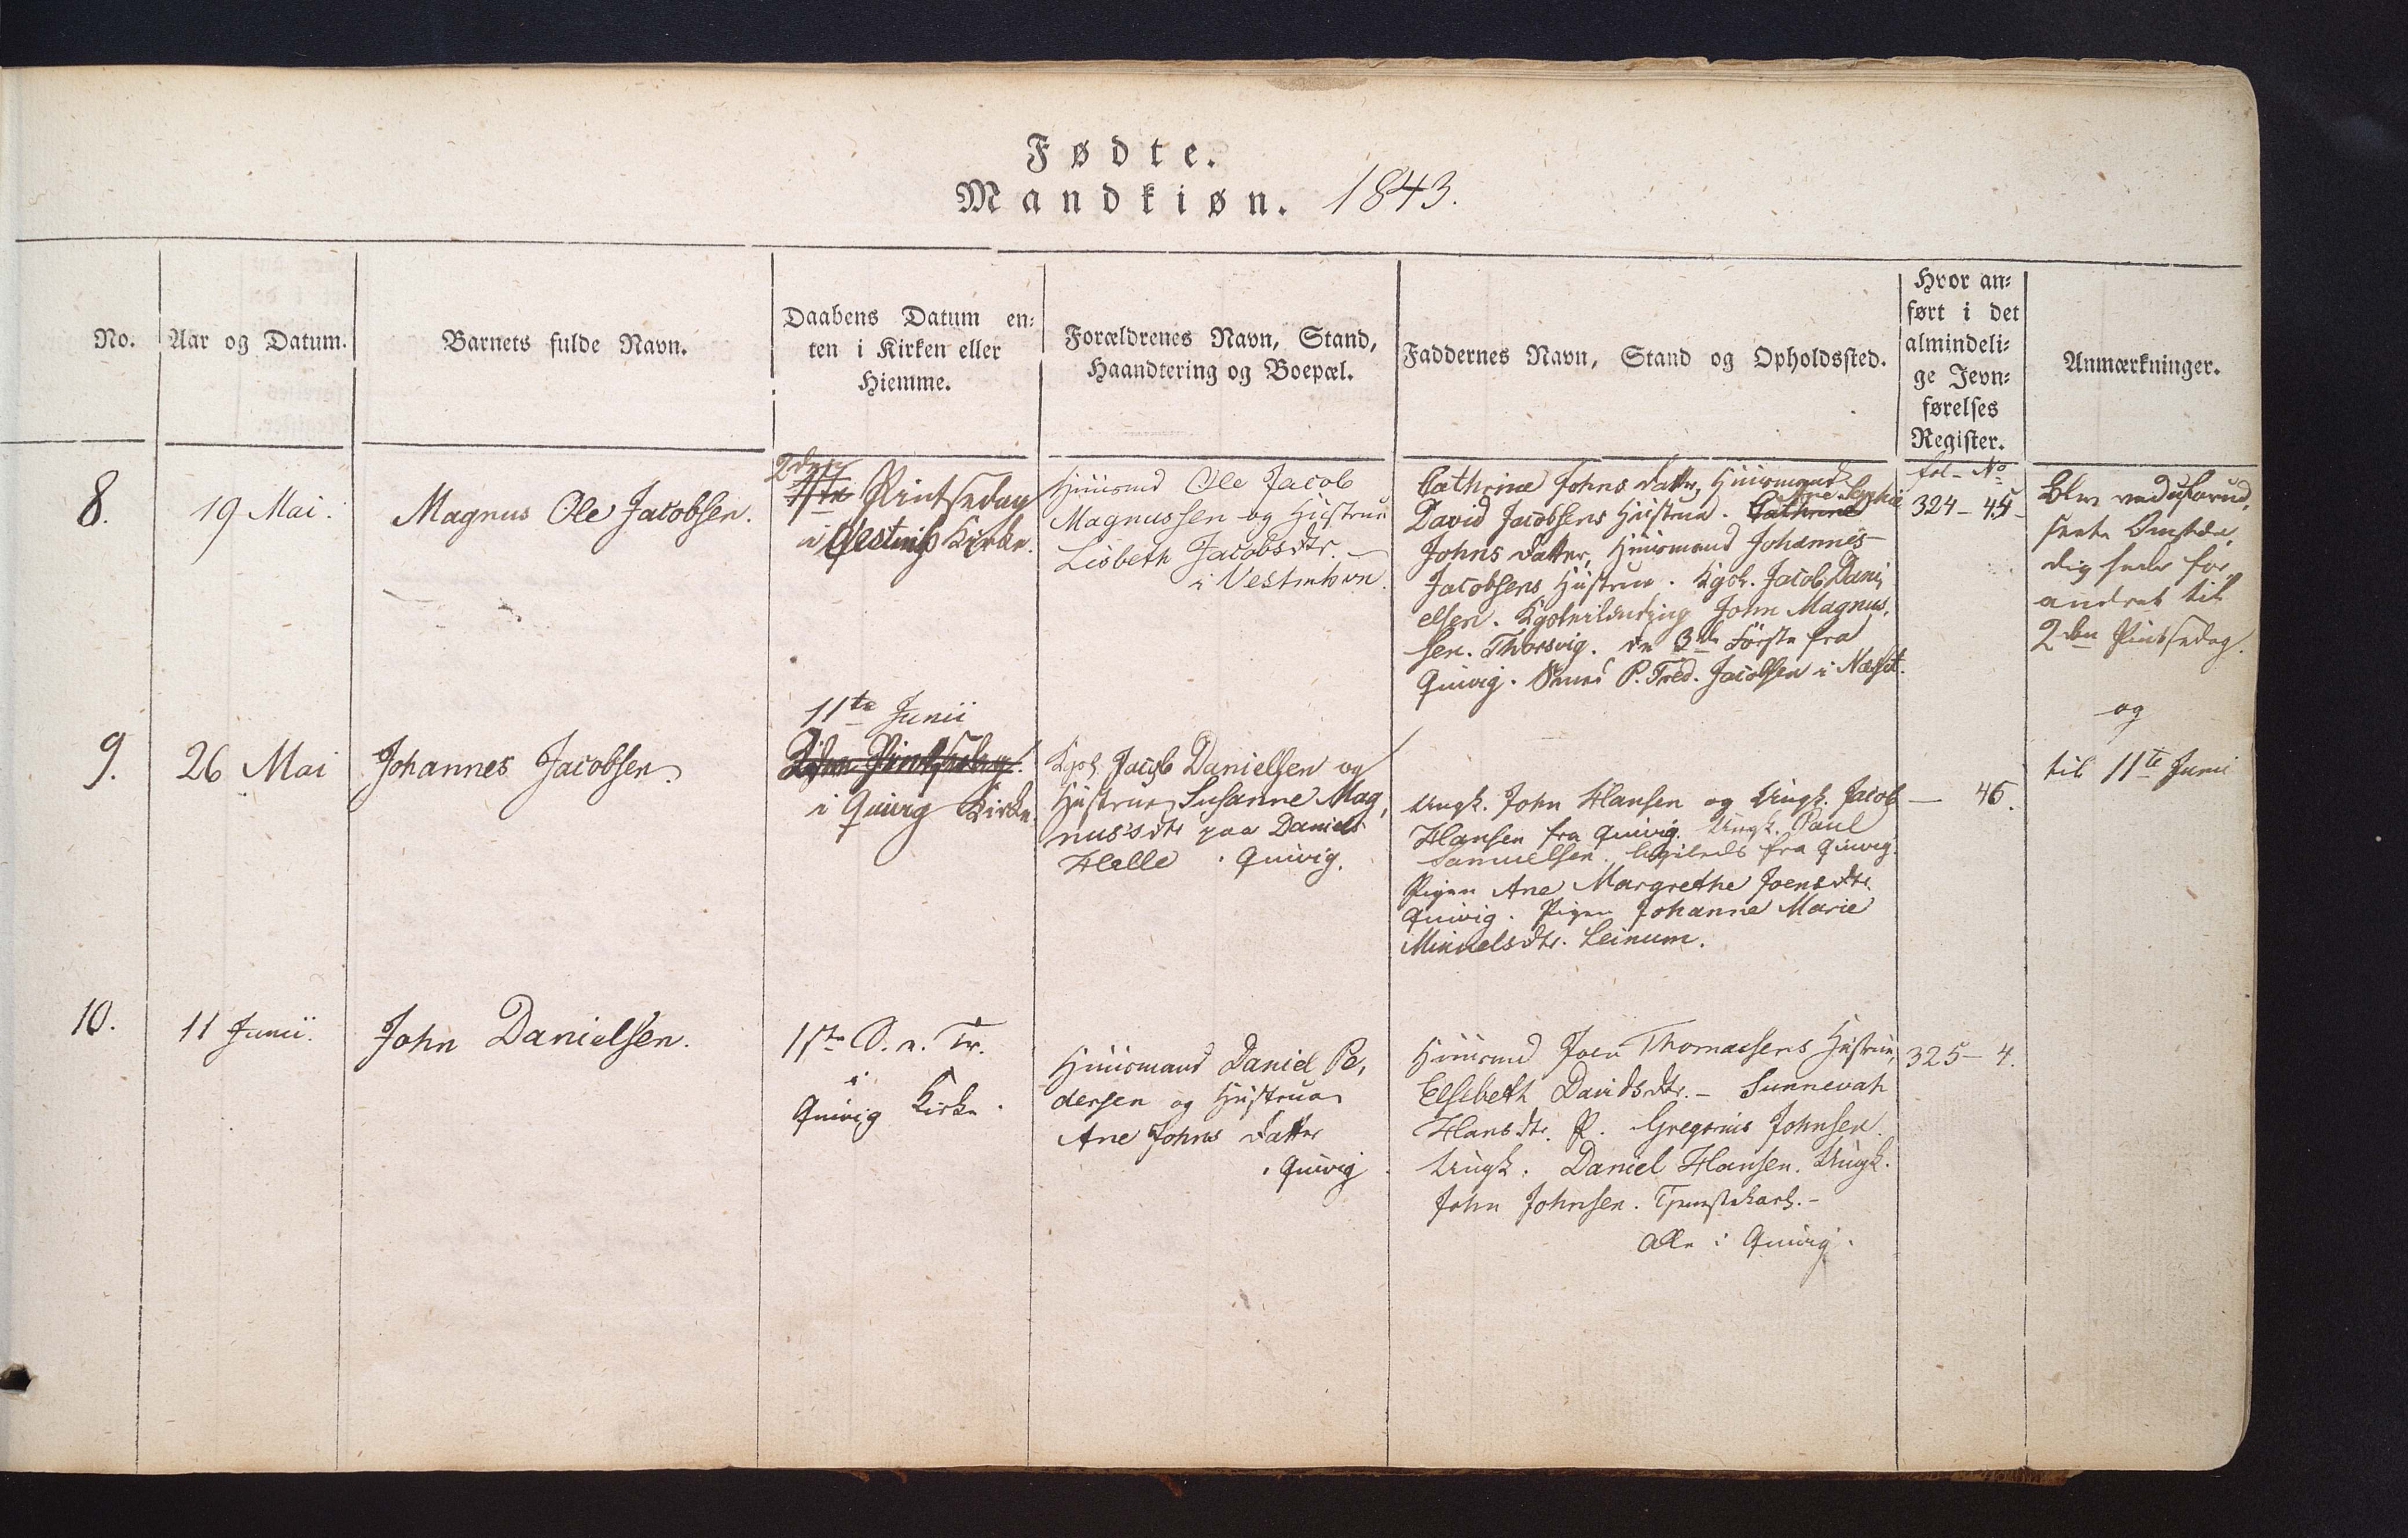 Fødte.
Mandkiøn. 1843.
No.
Aar og Datum.
Barnets fulde Navn.
Daabens Datum en-
ten i Kirken eller
Hiemme.
Forældrenes Navn, Stand,
Haandtering og Boepæl.
Faddernes Navn, Stand og Opholdssted.
Hvor an-
ført i det
almindeli-
ge Jevn-
førelses
Register.
Anmærkninger.
8.
19 Mai.
Magnus Ole Jacobsen.
2den
1ste Pintsedag
i Kirke.
Huusmd Ole Jacob
Magnussen og Hustrue
Lisbeth Jacobsdtr.
i Vestmhavn.
Cathrine Johns Datter, Huusmand
Ane Sophie
David Jacobsens Hustrue. Cathrine
Johns Datter, Huusmand Johannes
Jacobsens Hustrue. Kgsb. Jacob Dani,
elsen. John Magnus,
sen. Thorsvig. de 3de Første fra
Quivig. P. Fred. Jacobsen i
fol. No
324 - 45
Blev
Omstæn,
dig
andret til
2den Pintsedag.
og
til 11te Junii
9.
26 Mai
Johannes Jacobsen.
11te Junii
2den Pintsedag.
i Quivig Kirke.
Kgsb. Jacob Danielsen og
Hustrue Susanne Mag,
nus's dtr paa Daniels
Helle i Quivig.
Ungk. John Hansen og Ungk. Jacob
Hansen fra Quivig. Ungk. Paul
Samuelsen. ligeleds fra Quivig.
Pigen Ane Margrethe Joensdtr.
Quivig. Pigen Johanne Marie
Mikkelsdtr. Leinum.
— 46.
10.
11 Junii.
John Danielsen.
1ste S. e. Tr.
i
Quivig Kirke.
Huusmand Daniel Pe,
dersen og Hustrue
Ane Johns Datter
i Quivig.
Huusmd Joen Thomassens Hustrue,
Elsebeth Davidsdtr. - Sunnevah
Hansdtr. P. Gregorius Johnsen.
Ungk. Daniel Hansen. Ungk.
John Johnsen. Tjenestekarl. -
Alle i Quivig.
325 - 4.